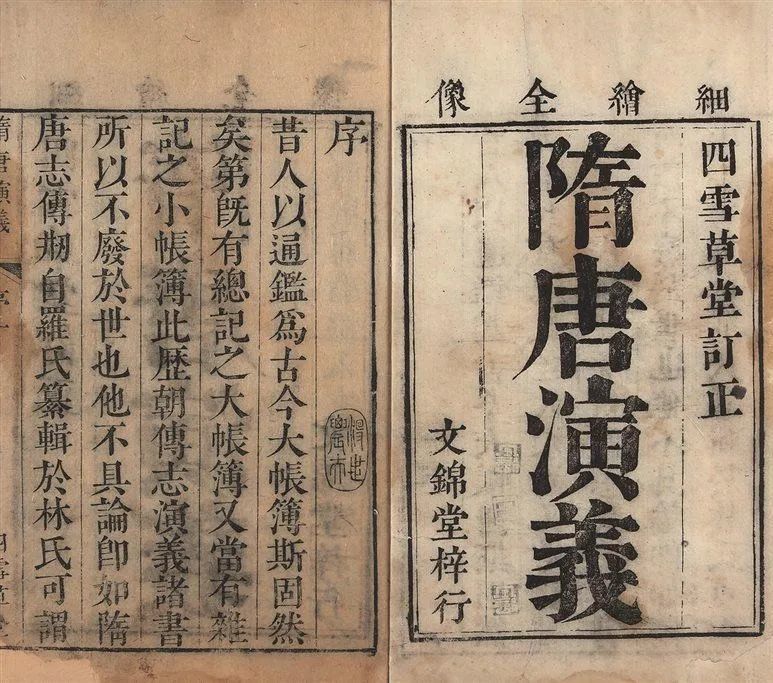 細繪全像
四雪草堂訂正
隋唐演義
文錦堂梓行
序
昔人以通鑑爲古今大帳簿斯固然
矣第旣有總記之大帳簿又當有雜
記之小帳簿此歷朝傳志演義諸書
所以不廢於世也他不具論卽如隋
唐志傳剏自羅氏纂輯於林氏可謂
隋唐演義